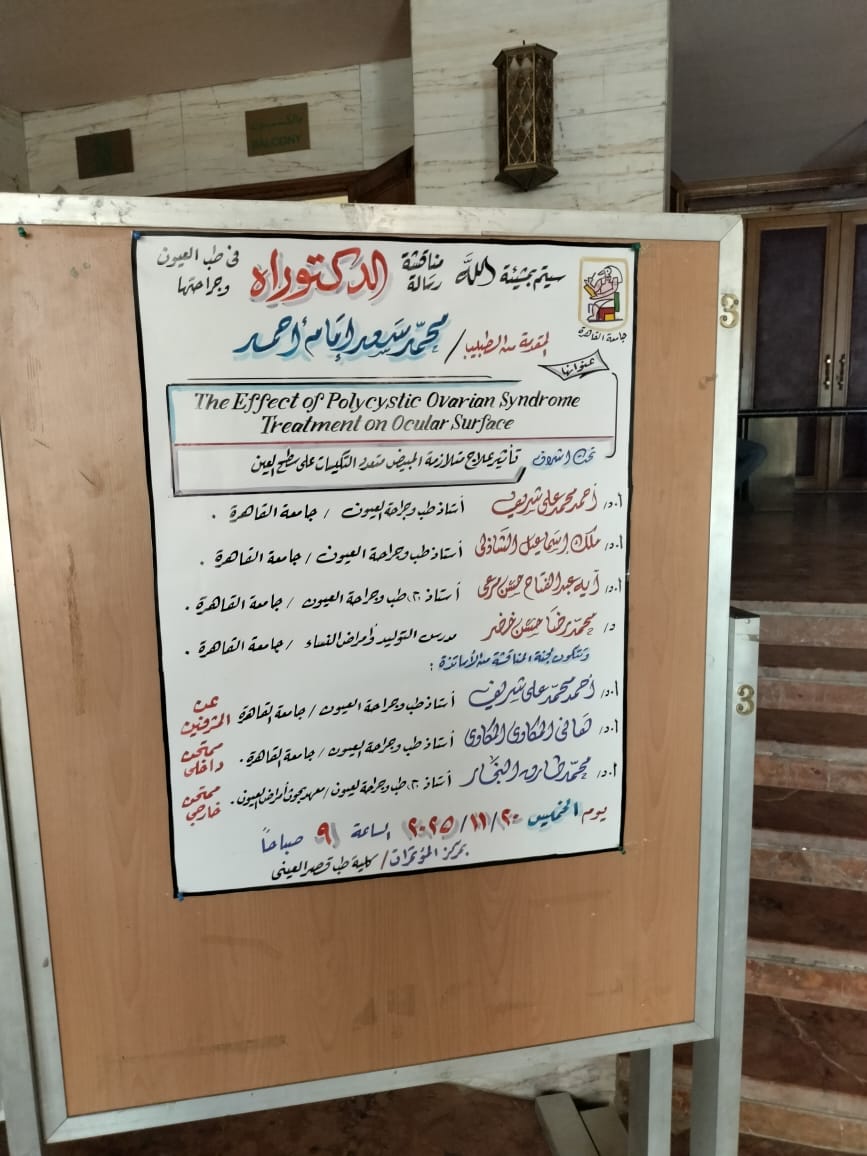 بالكـــون
BALCONY
3
3
جامعة القاهرة
سيتم بمشيئة الله مناقشة رسالة الدكتوراه فى طب العيون وجراحتها
المقدمة من الطبيب / محمد سعد إمام أحمد
عنوانها
The Effect of Polycystic Ovarian Syndrome
Treatment on Ocular Surface
تأثير علاج متلازمة المبيض متعدد التكيسات على سطح العين
تحت اشراف
أ.د/ أحمد محمد على شريف أستاذ طب وجراحة العيون / جامعة القاهرة .
أ.د/ ملك إسماعيل الشاذلى أستاذ طب وجراحة العيون / جامعة القاهرة .
أ.د/ آيه عبدالفتاح حسن مرعى أستاذ م. طب وجراحة العيون / جامعة القاهرة .
د/ محمد رضا حسن خضر مدرس التوليد وأمراض النساء / جامعة القاهرة .
وتتكون لجنة المناقشة من الأساتذة :
أ.د/ أحمد محمد على شريف أستاذ طب وجراحة العيون / جامعة القاهرة عن المشرفين
أ.د/ هانى المكاوى المكاوى أستاذ طب وجراحة العيون / جامعة القاهرة . ممتحن داخلى
أ.د/ محمد طارق النجار أستاذ م. طب وجراحة العيون / معهد بحوث أمراض العيون . ممتحن خارجي
يوم الخميس ٢٠/١١/٢٠٢٥ الساعة ٩ صباحاً
بمركز المؤتمرات / كلية طب قصر العينى